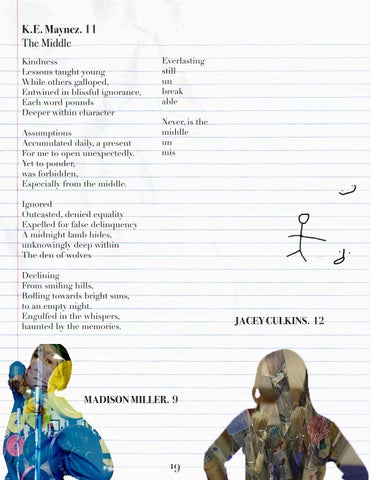 K.E. Maynez. 11
The Middle
Kindness
Lessons taught young
While others galloped,
Entwined in blissful ignorance,
Each word pounds
Deeper within character
Assumptions
Accumulated daily, a present
For me to open unexpectedly.
Yet to ponder,
was forbidden,
Especially from the middle.
Ignored
Outcasted, denied equality
Expelled for false delinquency
A midnight lamb hides,
unknowingly deep within
The den of wolves
Declining
From smiling hills,
Rolling towards bright suns,
to an empty night.
Engulfed in the whispers,
haunted by the memories.
Everlasting
still
un
break
able
Never, is the
middle
un
mis
JACEY CULKINS. 12
MADISON MILLER. 9
19